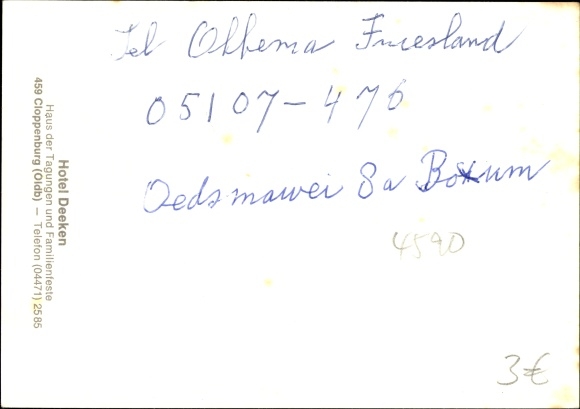 Tel Ottema Friesland
05107-476
Oedsmawei 8a Boxum
4590
3€
Hotel Deeken
Haus der Tagungen und Familienfeste
459 Cloppenburg (Oldb) — Telefon (04471) 2585